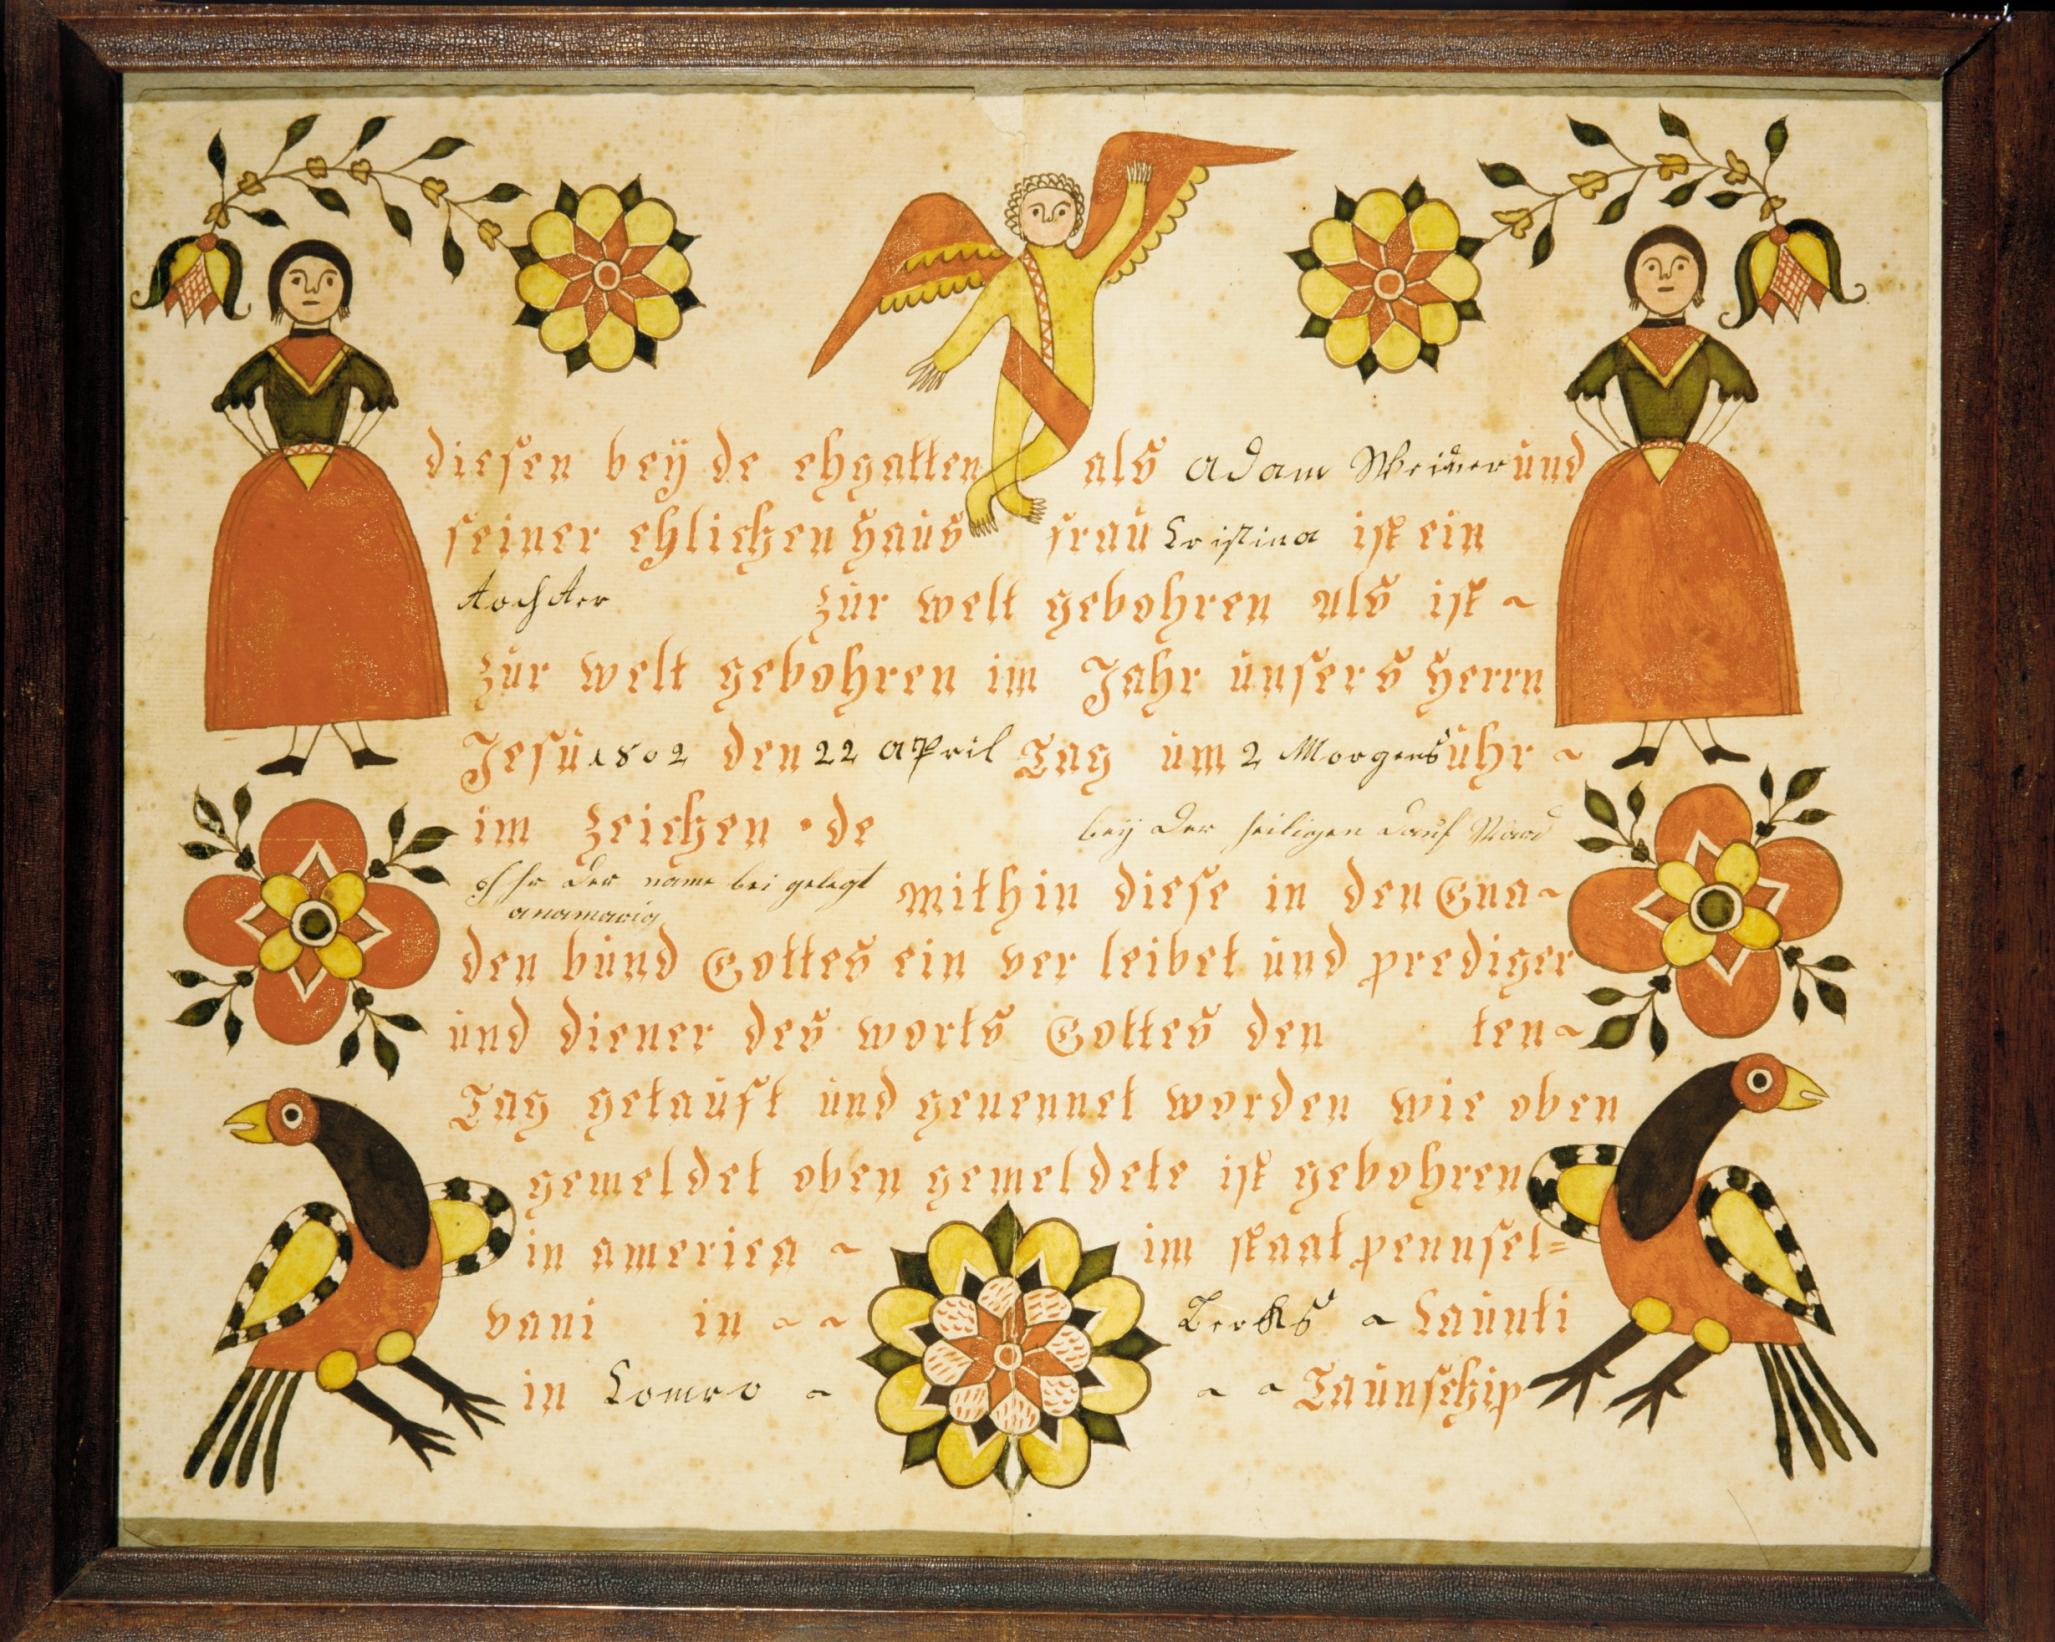 diesen beÿ de ehgatten als Adam Weiner und
seiner ehlichen haus frau Cristina ist ein
tochter zur welt gebohren Als ist ~
zur welt gebohren im Jahr unsers herrn
Jesu 1802 den 22 April Tag um 2 Morgens uhr ~
im zeichen · de beÿ der heiligen dauf Ward
ihr der name bei gelegt mithin diese in den Gna~
anamaria
den bund Gottes ein ver leibet und prediger
und diener des worts Gottes den ten~
Tag getauft und genennet worden wie oben
gemeldet oben gemeldete ist gebohren
in america ~ im staat pennsel=
vani in ~ ~ Berks ~ Caunti
in Comro ~ ~ ~ Taunschip